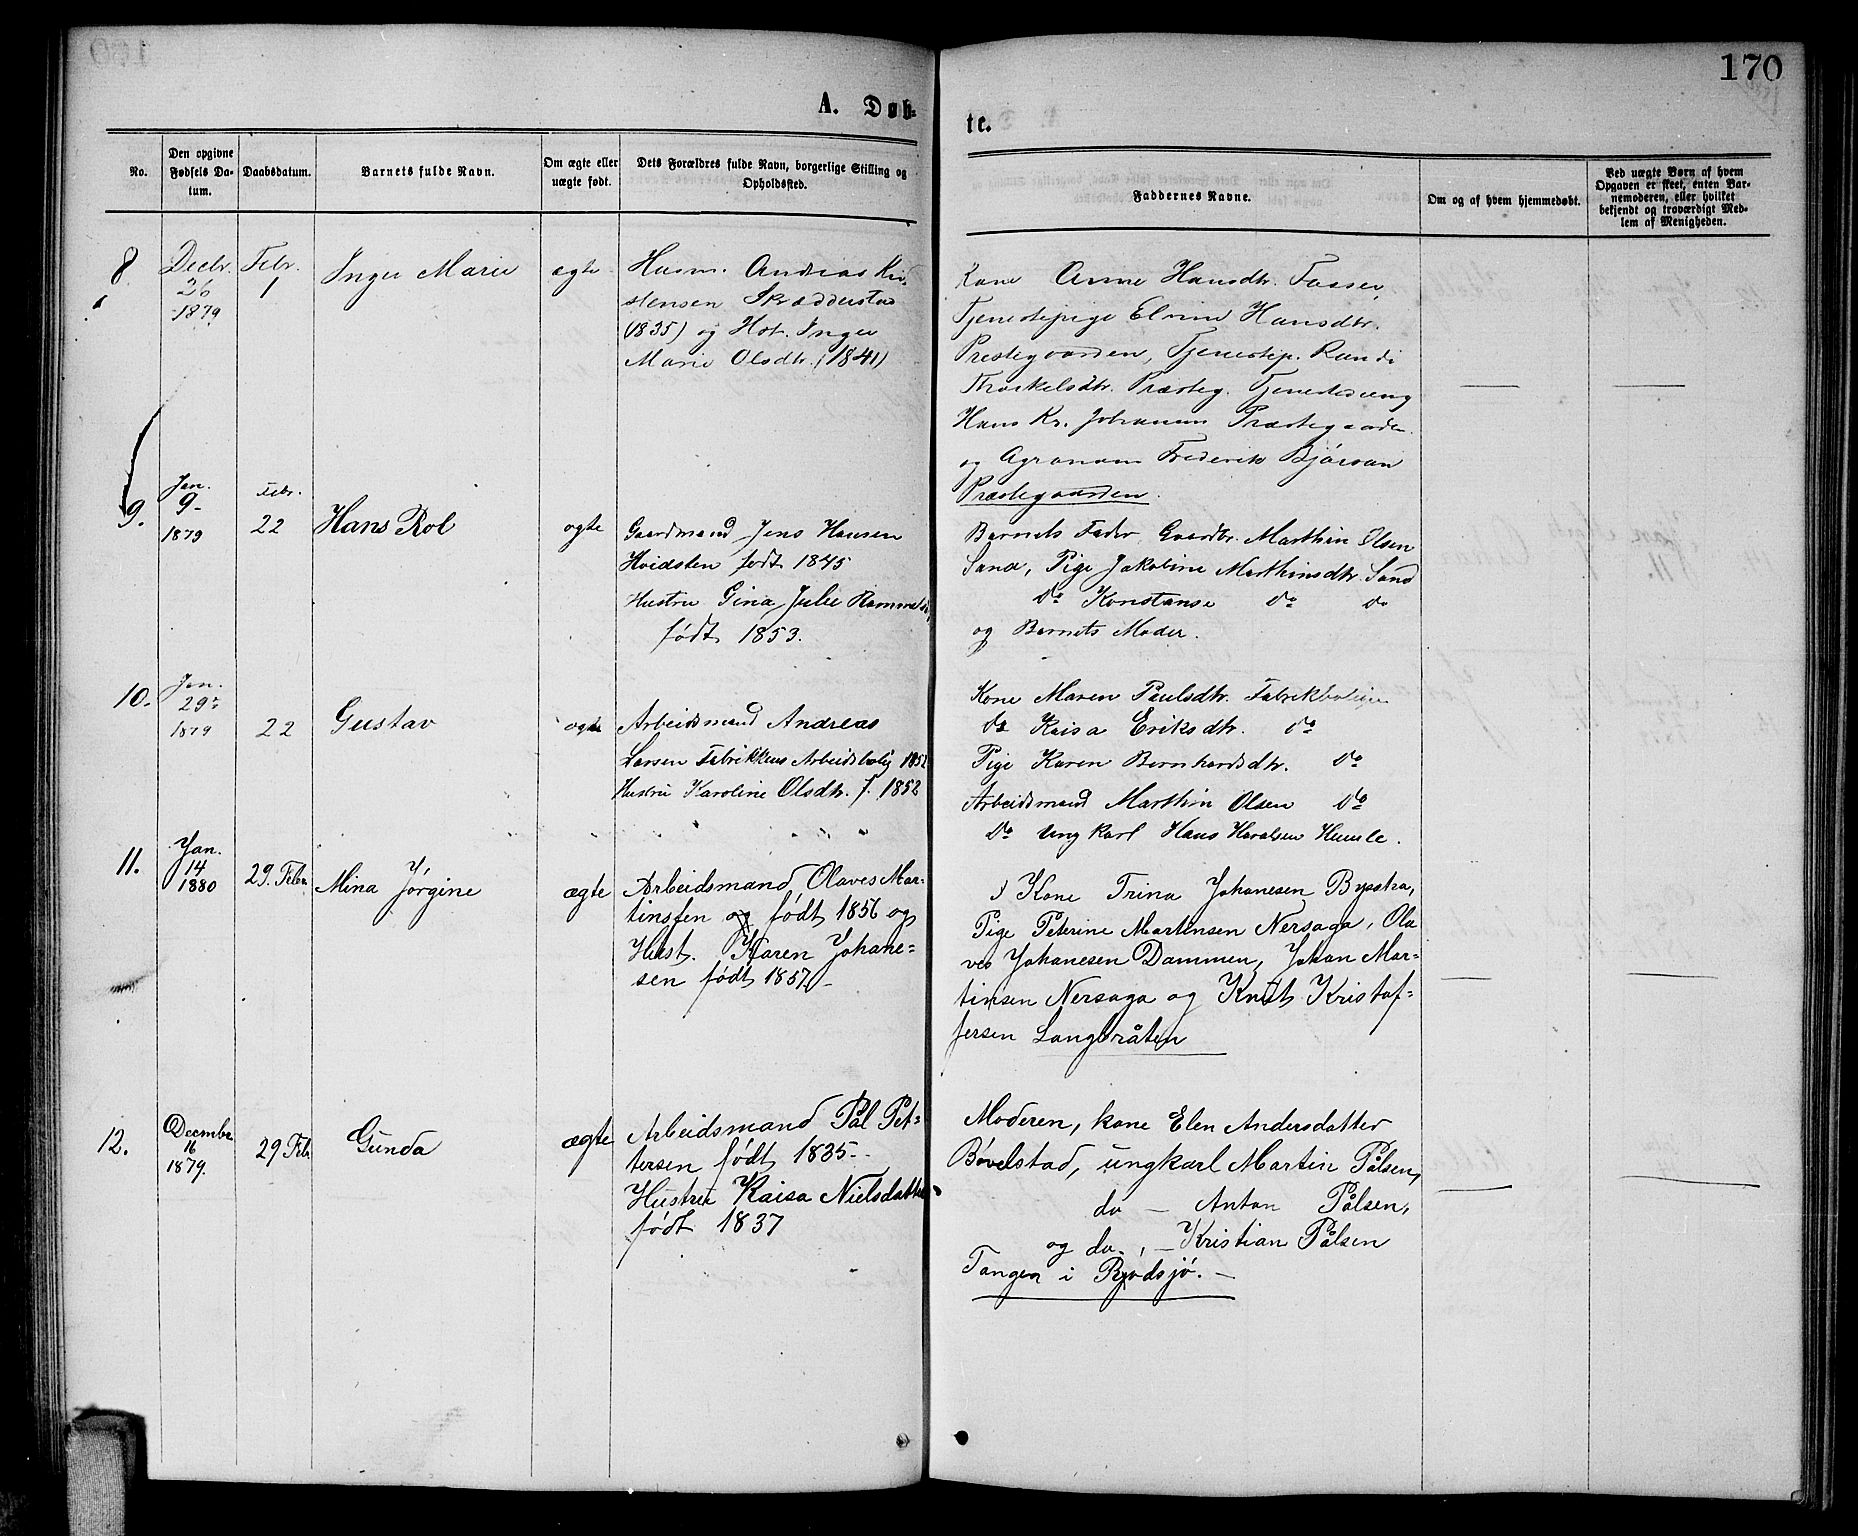 170
A. Døb-
te.
No.
Den opgivne Fødsels Da-tum.
Daabsdatum.
Barnets fulde Navn.
Om ægte eller uægte født.
Dets Forældres fulde Navn, borgerlige Stilling og Opholdssted.
Faddernes Navne.
Om og af hvem hjemmedøbt.
Ved uægte Børn af hvem Opgaven er skeet, enten Bar-nemoderen, eller hvilket bekjendt og troværdigt Med-lem af Menigheden.
8
Decbr. 26 1879
Febr. 1
Inger Marie
ægte
Husm. Andreas Kri-
stensen Skrædderstad
(1835) og Hst. Inger
Marie Olsdtr. (1841)
Kone Anne Hansdtr. Fosser,
Tjenestepige Elvine Hansdtr.
Prestegaarden, Tjenestep. Randi
Thorkelsdtr. Præsteg. Tjenestedreng
Hans Kr. Johansen Præstegaarden
og Agronom Frederik Bjørson
Præstegaarden.
9.
Jan. 9- 1879
Febr. 22
Hans Rol
ogte
Gaardmand Jens Hansen
Hvidsten født 1845
Hustru Gina Julie
født 1853.
Barnets Fader, Gaardbr. Marthin Olsen
Sand, Pige Jakobine Marthinsdtr. Sand
do Konstanse do do
og Barnets Moder.
10.
Jan. 29 1879
22
Gustav
ogte
Arbeidsmand Andreas
Larsen Fabrikkens Arbeidsbolig 1852
Hustru Karoline Olsdtr. f. 1852
Kone Maren Paulsdtr. Fabrikboligen
do Kaisa Eriksdtr. do
Pige Karen Bernhardsdtr. do
Arbeidsmand Marthin Olsen do
do Ungkarl Hans Haralsen Humle.
11.
Jan. 14 1880
29. Febr.
Mina Jørgine
ægte
Arbeidsmand Olaves Mar-
tinsen og født 1856 og
Hust. Karen Johane-
sen født 1857. -
Kone Trina Johanesen Bysstra,
Pige Peterine Martinsen Nersaga, Ola
ves Johanesen Dammen, Johan Mar-
tinsen Nersaga og Knut Kristof-
fersen Langbråten
12.
Decmbr. 16 1879.
29 Feb.
Gunda
ægte
Arbeidsmand Pål Pet-
tersen født 1835--
Hustru Kaisa Nielsdatter
født 1837
Moderen, kone Elen Andersdatter
Bøvelstad, ungkarl Martin Pålsen,
do - Anton Pålsen,
og do. - Kristian Pålsen
Tangen i Rødsjø. -